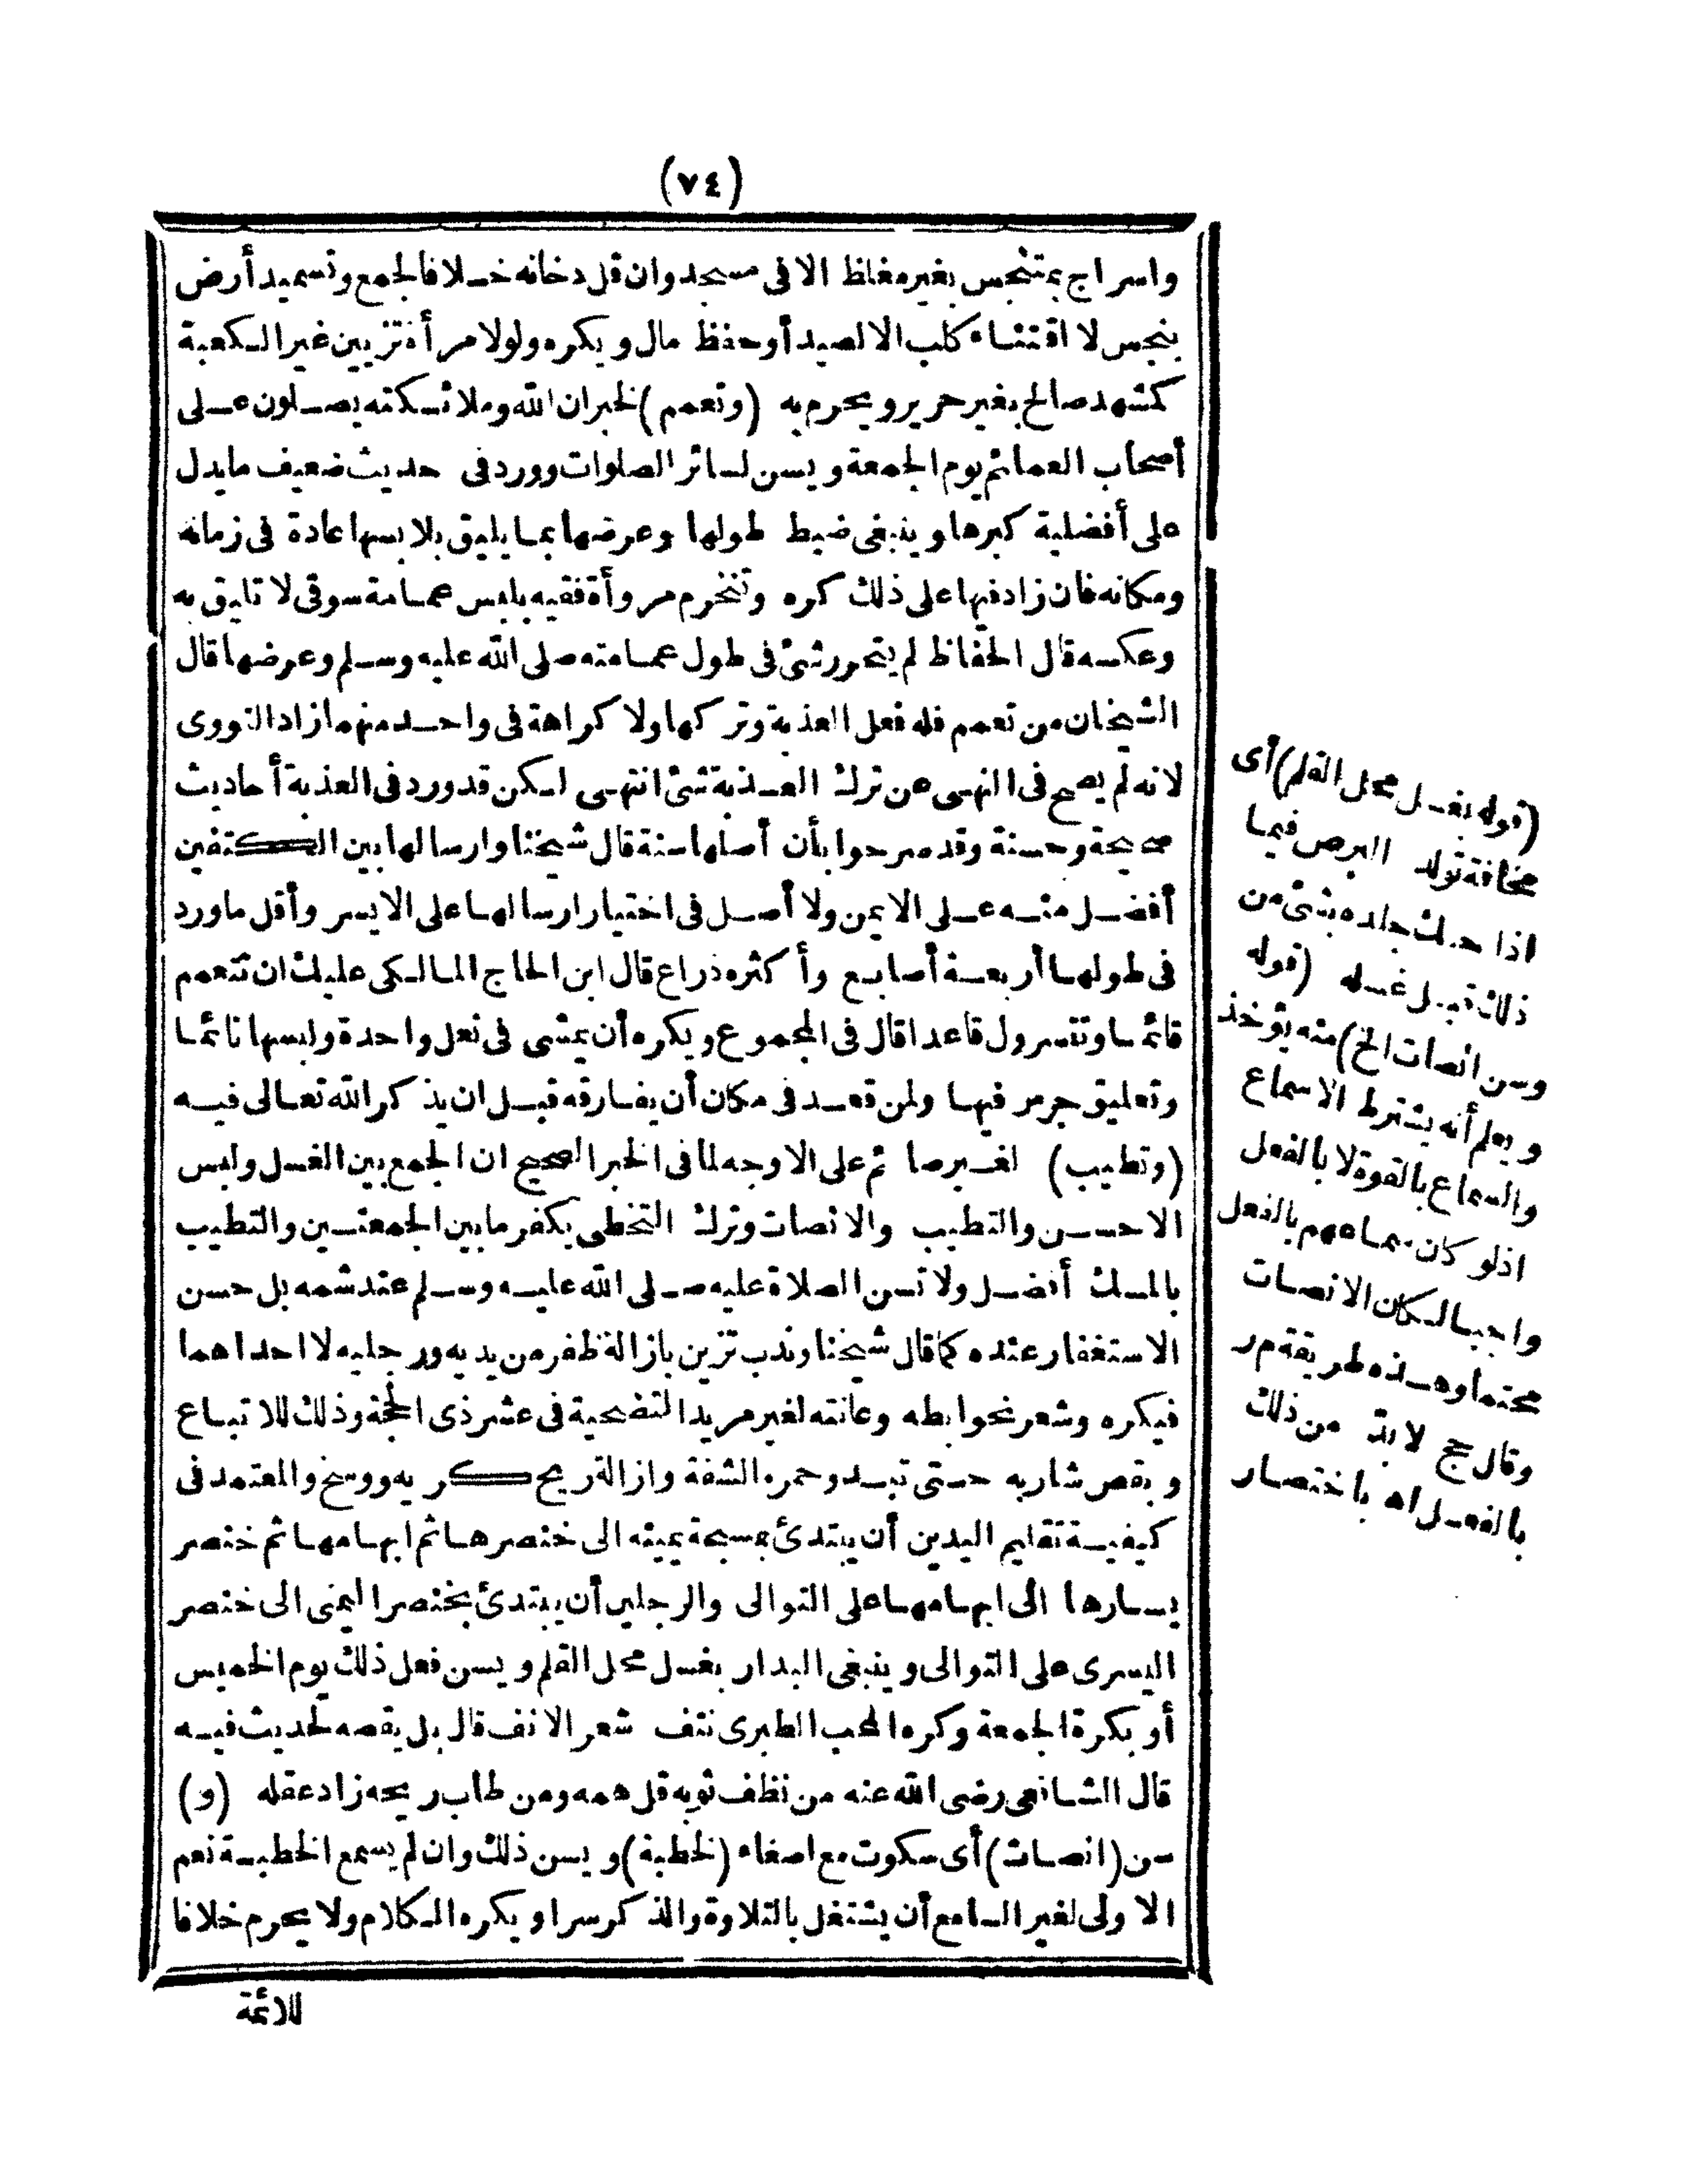 (٧٤)
واسراج بمتنجس بغير مغلظ الا فى مسجد وان قل دخانه خلافا لجمع وتسميد أرض
بنجس لا اقتناء كلب الا لصيد أو حفظ مال ويكره ولو لامرأة تزيين غير الكعبة
كمشهد صالح بغير حرير ويحرم به (وتعمم) لخبر ان الله وملائكته يصلون على
أصحاب العمائم يوم الجمعة ويسن لسائر الصلوات وورد فى حديث ضعيف ما يدل
على أفضلية كبرها وينبغى ضبط طولها وعرضها بما يليق بلابسها عادة فى زمانه
ومكانه فان زاد فيها على ذلك كره وتنخرم مروأة فقيه بلبس عمامة سوقى لا تليق به
وعكسه قال الحفاظ لم يتحرر شئ فى طول عمامته صلى الله عليه وسلم وعرضها قال
الشيخان من تعمم فله فعل العذبة وتركها ولا كراهة فى واحد منهما زاد النووى
لانه لم يصح فى النهى عن ترك العذبة شئ انتهى لكن قد ورد فى العذبة أحاديث
صحيحة وحسنة وقد صرحوا بأن أصلها سنة قال شيخنا وارسالها بين الكتفين
أفضل منه على الايمن ولا أصل فى اختيار ارسالها على الايسر وأقل ما ورد
فى طولها أربعة أصابع وأكثره ذراع قال ابن الحاج المالكى عليك ان تتعمم
قائما وتتسرول قاعدا قال فى المجموع ويكره أن يمشى فى نعل واحدة ولبسها قائما
وتعليق جرس فيها ولمن قعد فى مكان أن يفارقه قبل ان يذكر الله تعالى فيه
(وتطيب) لغير صائم على الاوجه لما فى الخبر الصحيح ان الجمع بين الغسل ولبس
الاحسن والتطيب والانصات وترك التخطى يكفر ما بين الجمعتين والتطيب
بالمسك أفضل ولا تسن الصلاة عليه صلى الله عليه وسلم عند شمه بل حسن
الاستغفار عنده كما قال شيخنا وندب تزين بازالة ظفر من يديه ورجليه لا احداهما
فيكره وشعر نحو ابطه وعانته لغير مريد التضحية فى عشر ذى الحجة وذلك للاتباع
وبقص شاربه حتى تبدو حمرة الشفة وازالة ريح كريه ووسخ والمعتمد فى
كيفية تقليم اليدين أن يبتدئ بمسبحة يمينه الى خنصرها ثم ابهامها ثم خنصر
يسارها الى ابهامها على التوالى والرجلين أن يبتدئ بخنصر اليمنى الى خنصر
اليسرى على التوالى وينبغى البدار بغسل محل القلم ويسن فعل ذلك يوم الخميس
أو بكرة الجمعة وكره المحب الطبرى نتف شعر الانف قال بل يقصه لحديث فيه
قال الشافعى رضى الله عنه من نظف ثوبه قل همه ومن طاب ريحه زاد عقله (و)
سن (انصات) أى سكوت مع اصغاء (لخطبة) ويسن ذلك وان لم يسمع الخطبة نعم
الاولى لغير السامع أن يشتغل بالتلاوة والذكر سرا ويكره الكلام ولا يحرم خلافا
للائمة
(قوله بغسل محل القلم) أى
مخافة تولد البرص فيما
اذا حك جلده بشئ من
ذلك قبل غسله (قوله
وسن انصات الخ) منه يؤخذ
ويعلم أنه يشترط الاسماع
والسماع بالقوة لا بالفعل
اذ لو كان سماعهم بالفعل
واجبا لكان الانصات
محتما وهذه طريقة م ر
وقال حج لا بد من ذلك
بالفعل اه باختصار